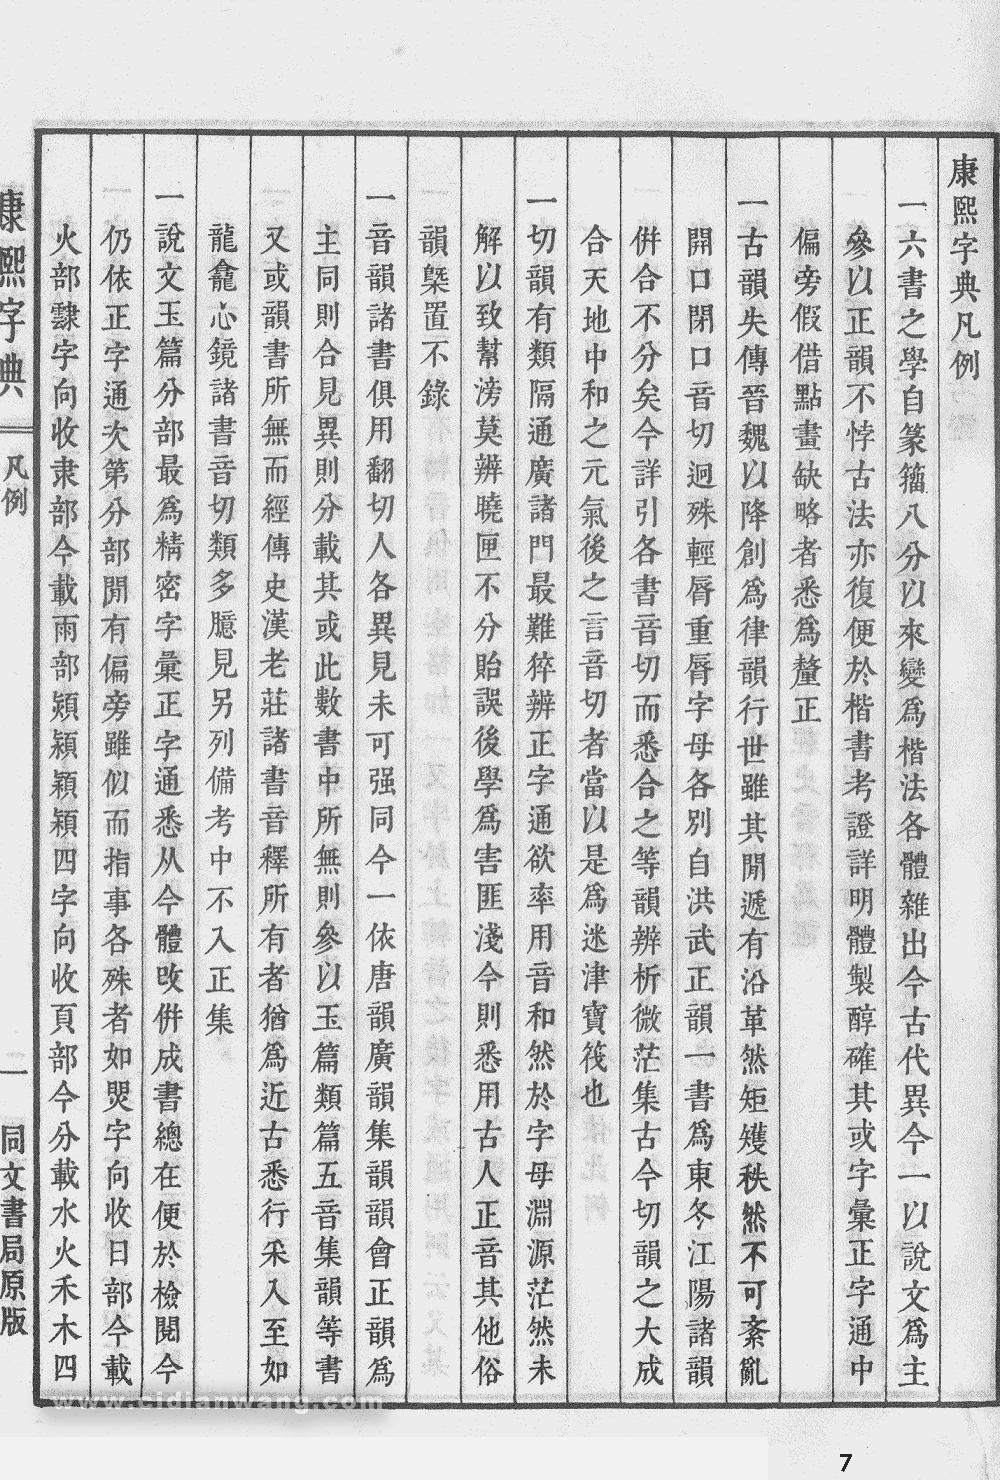 康熙字典凡例
一六書之學自篆籀八分以來變爲楷法各體雜出今古代異今一以說文爲主
參以正韻不悖古法亦復便於楷書考證詳明體製醇確其或字彙正字通中
偏旁假借點畫缺略者悉爲釐正
一古韻失傳晉魏以降創爲律韻行世雖其閒遞有沿革然矩矱秩然不可紊亂
開口閉口音切迥殊輕脣重脣字母各別自洪武正韻一書爲東冬江陽諸韻
倂合不分矣今詳引各書音切而悉合之等韻辨析微茫集古今切韻之大成
合天地中和之元氣後之言音切者當以是爲迷津寶筏也
一切韻有類隔通廣諸門最難猝辨正字通欲率用音和然於字母淵源茫然未
解以致幫滂莫辨曉匣不分貽誤後學爲害匪淺今則悉用古人正音其他俗
韻槩置不錄
一音韻諸書俱用翻切人各異見未可强同今一依唐韻廣韻集韻韻會正韻爲
主同則合見異則分載其或此數書中所無則參以玉篇類篇五音集韻等書
又或韻書所無而經傳史漢老莊諸書音釋所有者猶爲近古悉行采入至如
龍龕心鏡諸書音切類多臆見另列備考中不入正集
一說文玉篇分部最爲精密字彙正字通悉从今體改倂成書總在便於檢閱今
仍依正字通次第分部閒有偏旁雖似而指事各殊者如煚字向收日部今載
火部隸字向收隶部今載雨部熲潁穎穎四字向收頁部今分載水火禾木四
康熙字典
凡例
二
同文書局原版
www.cidianwang.com
7